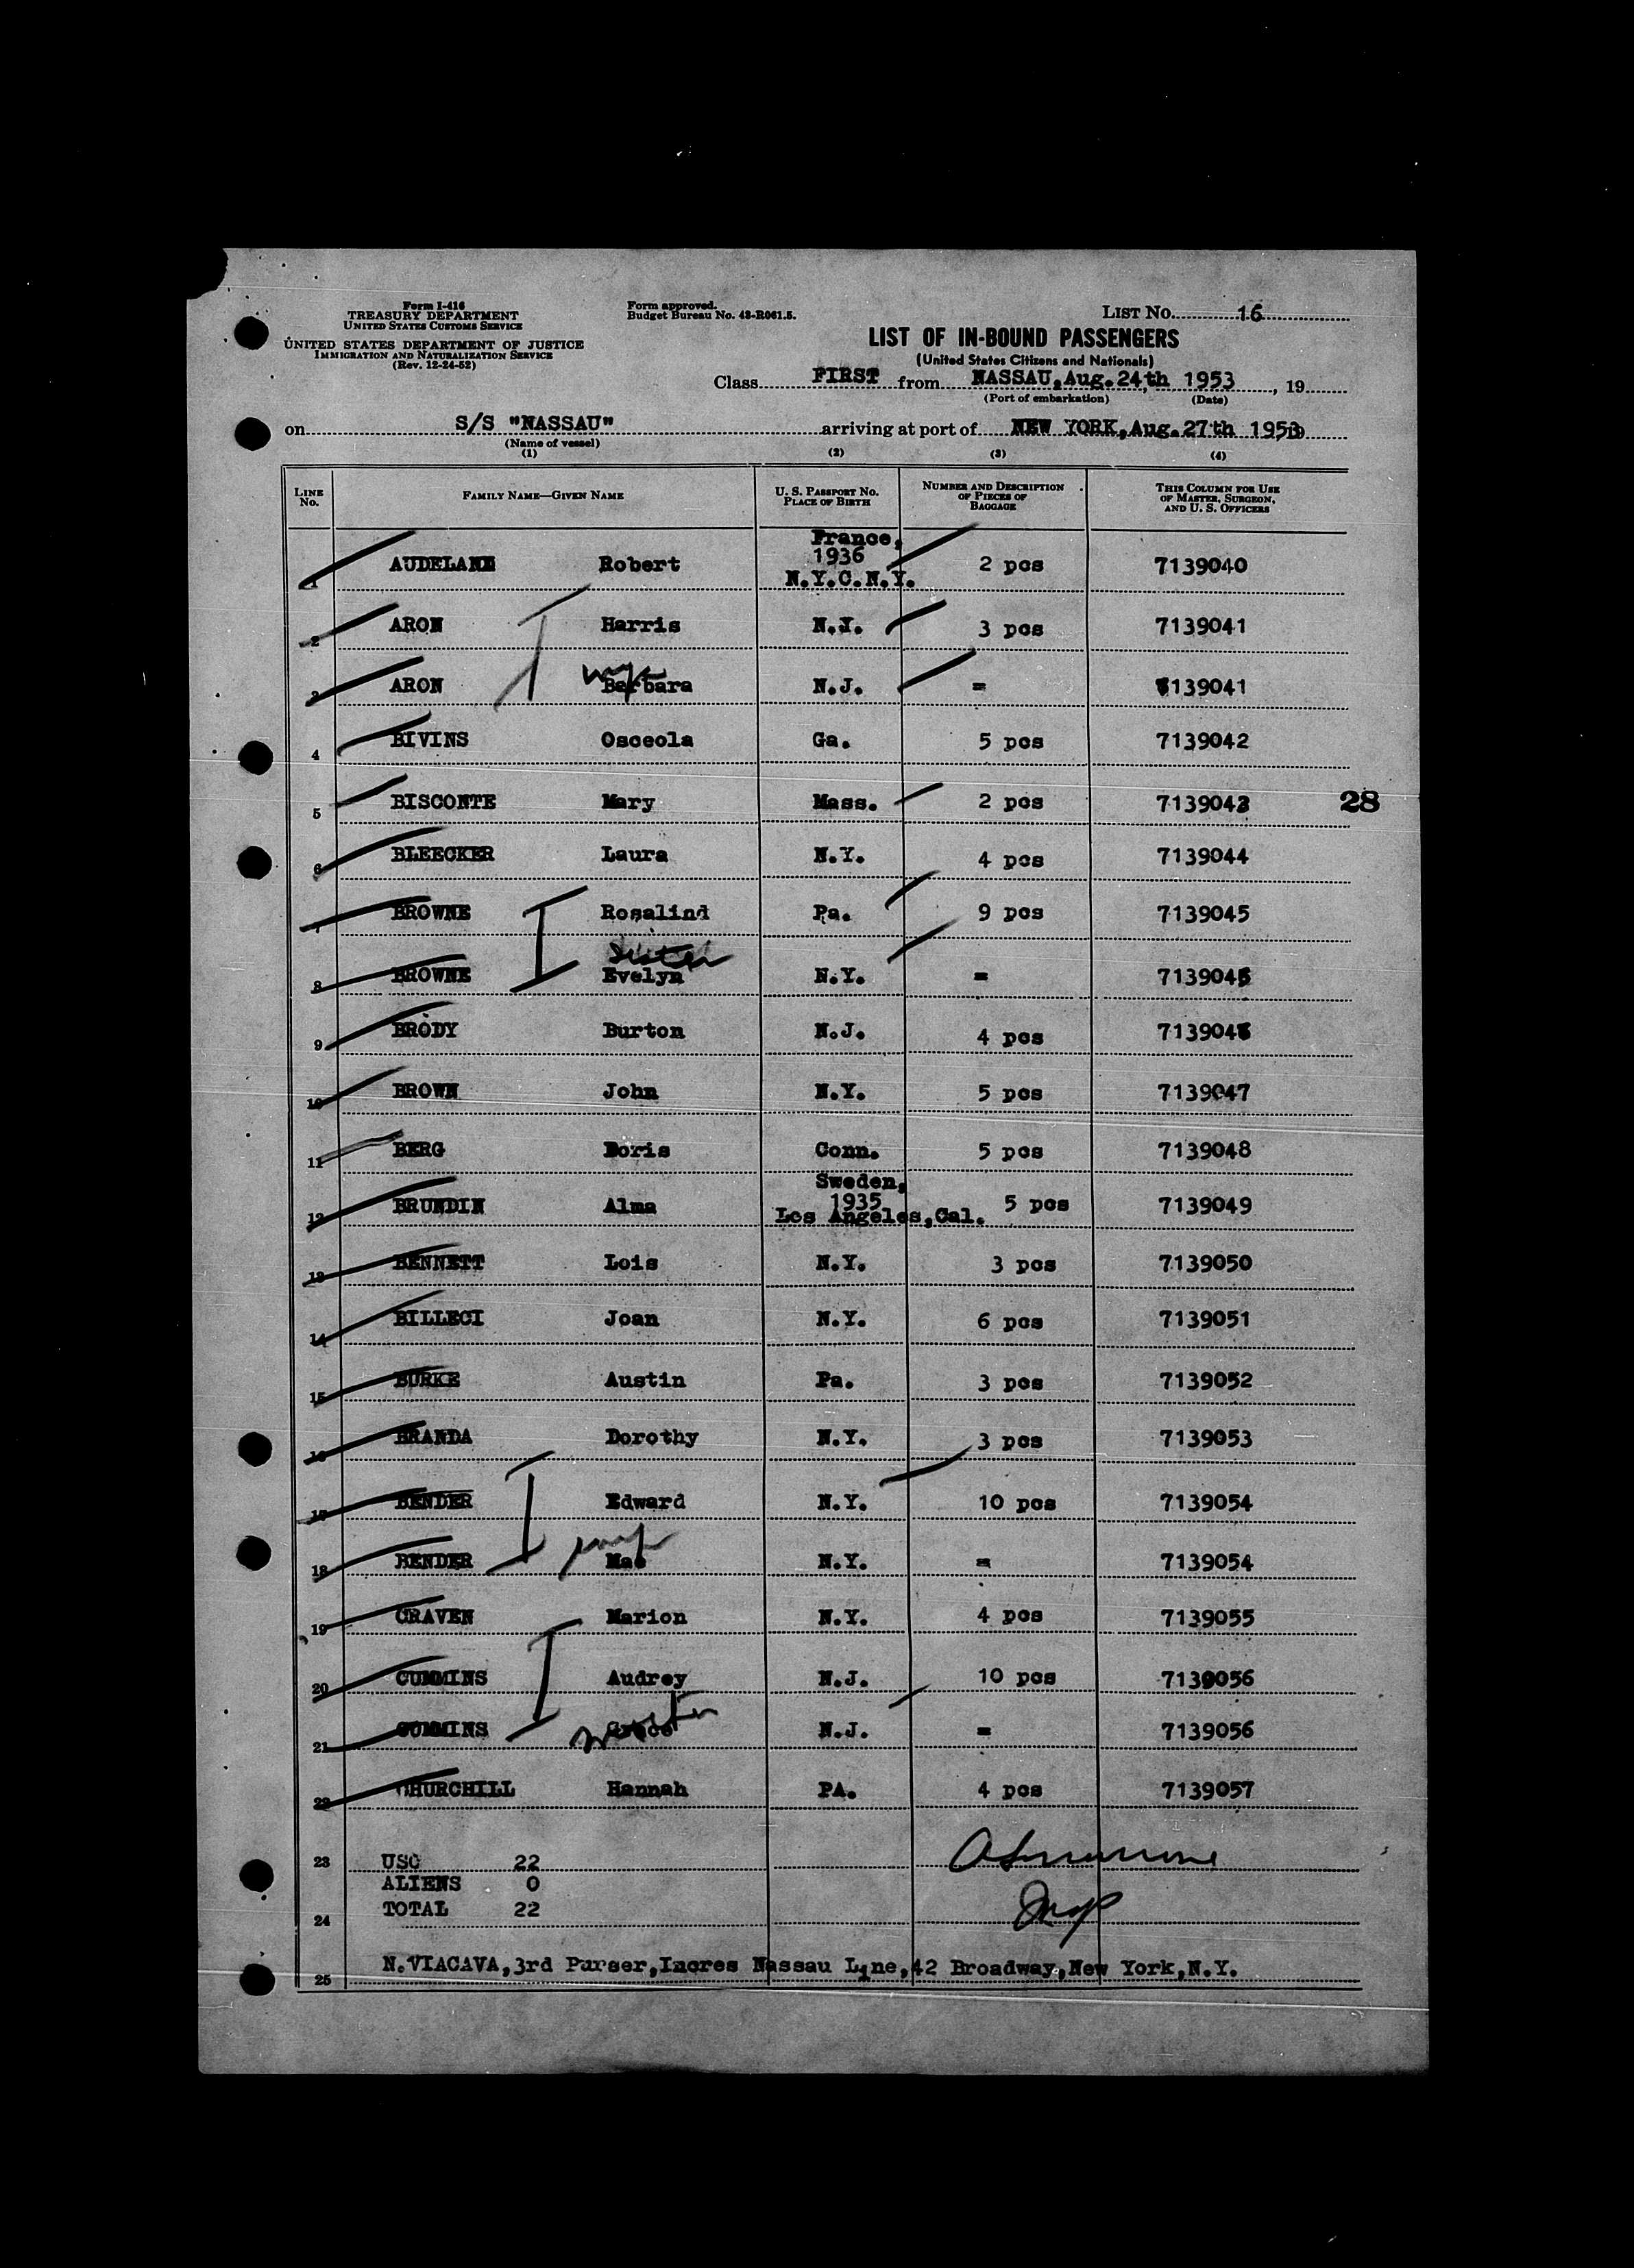 Form I-416
TREASURY DEPARTMENT
UNITED STATES CUSTOMS SERVICE
UNITED STATES DEPARTMENT OF JUSTICE
IMMIGRATION AND NATURALIZATION SERVICE
(Rev. 12-24-52)
Form approved.
Budget Bureau No. 43-R061.5.
LIST No. 16
LIST OF IN-BOUND PASSENGERS
(United States Citizens and Nationals)
Class FIRST from NASSAU, Aug. 24,th 1953, 19
(Port of embarkation) (Date)
on S/S "NASSAU" arriving at port of NEW YORK, Aug. 27th 1953
(Name of vessel)
(1) (2) (3) (4)
LINE No. FAMILY NAME—GIVEN NAME U. S. PASSPORT No. PLACE OF BIRTH NUMBER AND DESCRIPTION OF PIECES OF BAGGAGE THIS COLUMN FOR USE OF MASTER, SURGEON, AND U. S. OFFICERS
France,
1936
1 AUDELANE Robert N.Y.C.N.Y. 2 pcs 7139040
2 ARON Harris N.Y. 3 pcs 7139041
wife
3 ARON Barbara N.J. = 7139041
4 BIVINS Osceola Ga. 5 pcs 7139042
5 BISCONTE Mary Mass. 2 pcs 7139043 28
6 BLEECKER Laura N.Y. 4 pcs 7139044
7 BROWNE Rosalind Pa. 9 pcs 7139045
sister
8 BROWNE Evelyn N.Y. = 7139045
9 BRODY Burton N.J. 4 pcs 7139046
10 BROWN John N.Y. 5 pcs 7139047
11 BERG Doris Conn. 5 pcs 7139048
Sweden,
1935
12 BRUNDIN Alma Los Angeles,Cal. 5 pcs 7139049
13 BENNETT Lois N.Y. 3 pcs 7139050
14 BILLECI Joan N.Y. 6 pcs 7139051
15 BURKE Austin Pa. 3 pcs 7139052
16 BRANDA Dorothy N.Y. 3 pcs 7139053
17 BENDER Edward N.Y. 10 pcs 7139054
18 BENDER Mae N.Y. = 7139054
19 CRAVEN Marion N.Y. 4 pcs 7139055
20 CUMMINS Audrey N.J. 10 pcs 7139056
21 CUMMINS Grace N.J. = 7139056
22 CHURCHILL Hannah PA. 4 pcs 7139057
23 USC 22
ALIENS 0
24 TOTAL 22
25 N.VIACAVA,3rd Purser,Incres Nassau Line,42 Broadway,New York,N.Y.